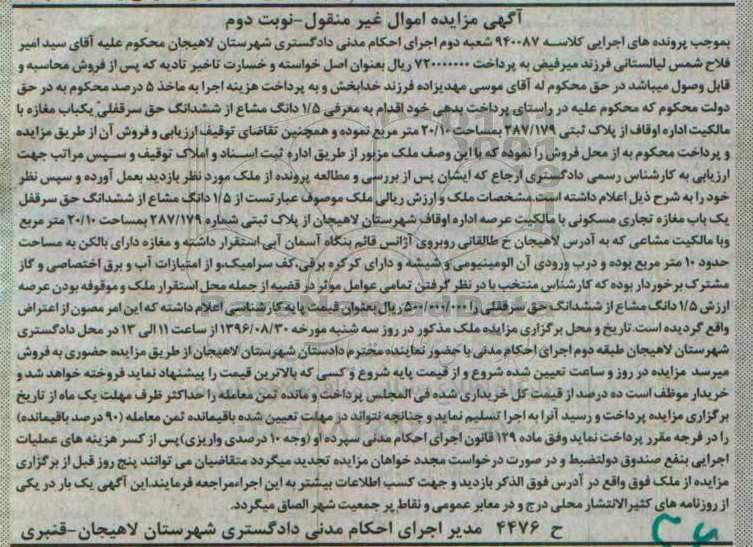 آگهی مزایده اموال غیر منقول-نوبت دوم
بموجب پرونده های اجرایی کلاسه ۹۴۰۰۸۷ شعبه دوم اجرای احکام مدنی دادگستری شهرستان لاهیجان محکوم علیه آقای سید امیر
فلاح شمس لیالستانی فرزند میرفیض به پرداخت ۷۲۰۰۰۰۰۰۰ ریال بعنوان اصل خواسته و خسارت تاخیر تادیه که پس از فروش محاسبه و
قابل وصول میباشد در حق محکوم له آقای موسی مهدیزاده فرزند خدابخش و به پرداخت هزینه اجرا به ماخذ ۵ درصد محکوم به در حق
دولت محکوم که محکوم علیه در راستای پرداخت بدهی خود اقدام به معرفی ۱/۵ دانگ مشاع از ششدانگ حق سرقفلی یکباب مغازه با
مالکیت اداره اوقاف از پلاک ثبتی ۲۸۷/۱۷۹ بمساحت ۲۰/۱۰ متر مربع نموده و همچنین تقاضای توقیف ارزیابی و فروش آن از طریق مزایده
و پرداخت محکوم به از محل فروش را نموده که با این وصف ملک مزبور از طریق اداره ثبت اسناد و املاک توقیف و سپس مراتب جهت
ارزیابی به کارشناس رسمی دادگستری ارجاع که ایشان پس از بررسی و مطالعه پرونده از ملک مورد نظر بازدید بعمل آورده و سپس نظر
خود را به شرح ذیل اعلام داشته است.مشخصات ملک و ارزش ریالی ملک موصوف عبارتست از ۱/۵ دانگ مشاع از ششدانگ حق سرقفل
یک باب مغازه تجاری مسکونی با مالکیت عرصه اداره اوقاف شهرستان لاهیجان از پلاک ثبتی شماره ۲۸۷/۱۷۹ بمساحت ۲۰/۱۰ متر مربع
وبا مالکیت مشاعی که به آدرس لاهیجان خ طالقانی روبروی آژانس قائم بنگاه آسمان آبی استقرار داشته و مغازه دارای بالکن به مساحت
حدود ۱۰ متر مربع بوده و درب ورودی آن الومینیومی و شیشه و دارای کرکره برقی،کف سرامیک،و از امتیازات آب و برق اختصاصی و گاز
مشترک برخوردار بوده که کارشناس منتخب با در نظر گرفتن تمامی عوامل موثر در قضیه از جمله محل استقرار ملک و موقوفه بودن عرصه
ارزش ۱/۵ دانگ مشاع از ششدانگ حق سرقفلی را ریال بعنوان قیمت پایه کارشناسی اعلام داشته که این امر مصون از اعتراض
واقع گردیده است.تاریخ و محل برگزاری مزایده ملک مذکور در روز سه شنبه مورخه ۱۳۹۶/۰۸/۳۰ از ساعت ۱۱ الی ۱۳ در محل دادگستری
شهرستان لاهیجان طبقه دوم اجرای احکام مدنی با حضور نماینده محترم دادستان شهرستان لاهیجان از طریق مزایده حضوری به فروش
میرسد مزایده در روز و ساعت تعیین شده شروع و از قیمت پایه شروع و کسی که بالاترین قیمت را پیشنهاد نماید فروخته خواهد شد و
خریدار موظف است ده درصد از قیمت کل خریداری شده فی المجلس پرداخت و مانده ثمن معامله را حداکثر ظرف مهلت یک ماه از تاریخ
برگزاری مزایده پرداخت و رسید آنرا به اجرا تسلیم نماید و چنانچه نتواند در مهلت تعیین شده باقیمانده ثمن معامله (۹۰ درصد باقیمانده)
را در فرجه مقرر پرداخت نماید وفق ماده ۱۲۹ قانون اجرای احکام مدنی سپرده او (وجه ۱۰ درصدی واریزی) پس از کسر هزینه های عملیات
اجرایی بنفع صندوق دولتضبط و در صورت درخواست مجدد خواهان مزایده تجدید میگردد متقاضیان می توانند پنج روز قبل از برگزاری
مزایده از ملک فوق واقع در آدرس فوق الذکر بازدید و جهت کسب اطلاعات بیشتر به این اجراءمراجعه فرمایند.این آگهی یک بار در یکی
از روزنامه های کثیرالانتشار محلی درج و در معابر عمومی و نقاط پر جمعیت شهر الصاق میگردد.
ح ۴۴۷۶ مدیر اجرای احکام مدنی دادگستری شهرستان لاهیجان-قنبری